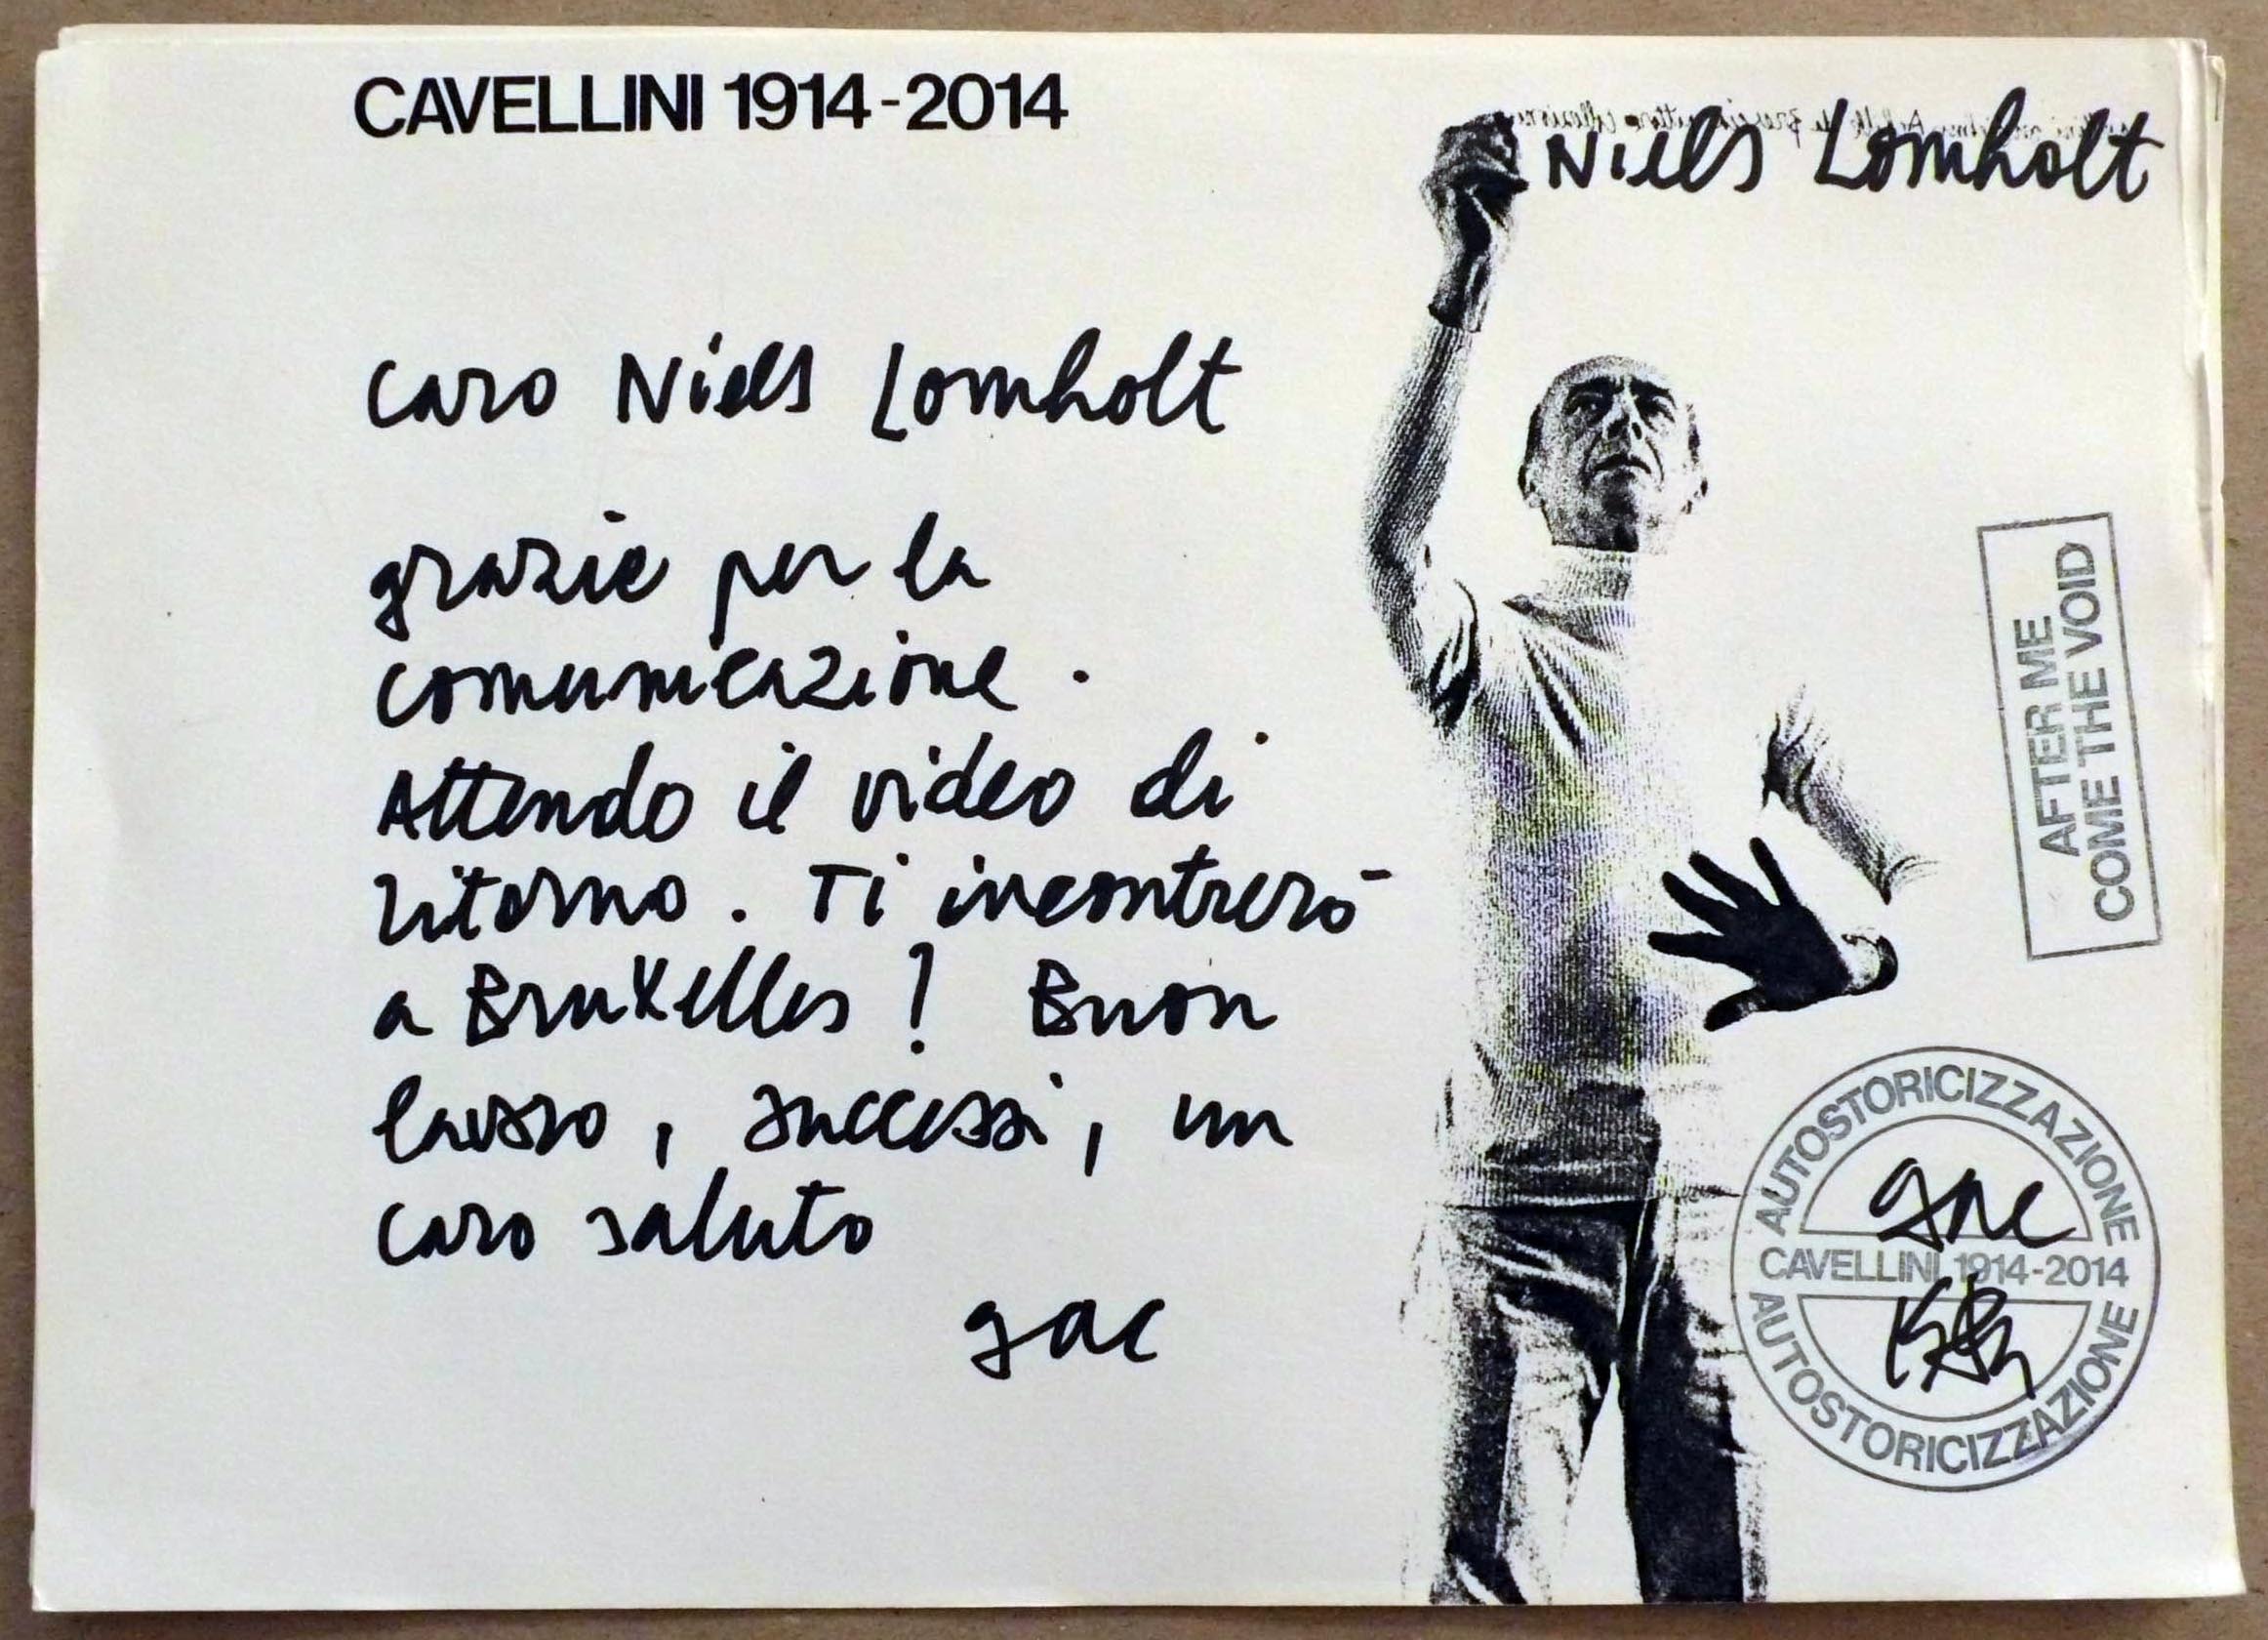 CAVELLINI 1914-2014
Niels Lomholt
Caro Niels Lomholt
grazie per la
comunicazione.
Attendo il video di
ritorno. Ti incontrerò
a Bruxelles? Buon
lavoro, successi, un
caro saluto
gac
AFTER ME
COME THE VOID
AUTOSTORICIZZAZIONE
gac
CAVELLINI 1914-2014
AUTOSTORICIZZAZIONE